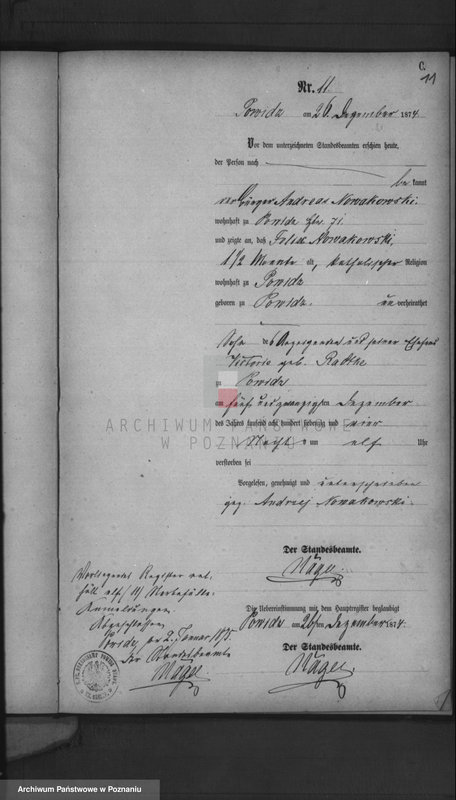 C.
11
Nr. 11
Powidz am 26. Dezember 1874.
Vor dem unterzeichneten Standesbeamten erschien heute,
der Person nach
bekannt
der Bürger Andreas Nowakowski
wohnhaft zu Powidz No. 71
und zeigte an, daß Felix Nowakowski,
1 1/2 Monate alt, katholischer Religion
wohnhaft zu Powidz
geboren zu Powidz. unverheirathet
Sohn des Anzeigenden und seiner Ehefrau
Victoria geb. Rathke
zu Powidz
am fünf und zwanzigsten Dezember
des Jahres tausend acht hundert siebenzig und vier
Nachts um elf Uhr
verstorben sei
Vorgelesen, genehmigt und unterschrieben
gez. Andrzej Nowakowski.
Der Standesbeamte.
Die Uebereinstimmung mit dem Hauptregister beglaubigt
Powidz am 26ten Dezember 1874.
Der Standesbeamte.
Vorliegendes Register ent-
hält elf (11) Sterbefälle-
Anmeldungen.
Abgeschlossen
Powidz, 2. Januar 1875.
Der Standesbeamte
ARCHIWUM PAŃSTWOWE
W POZNANIU
Archiwum Państwowe w Poznaniu